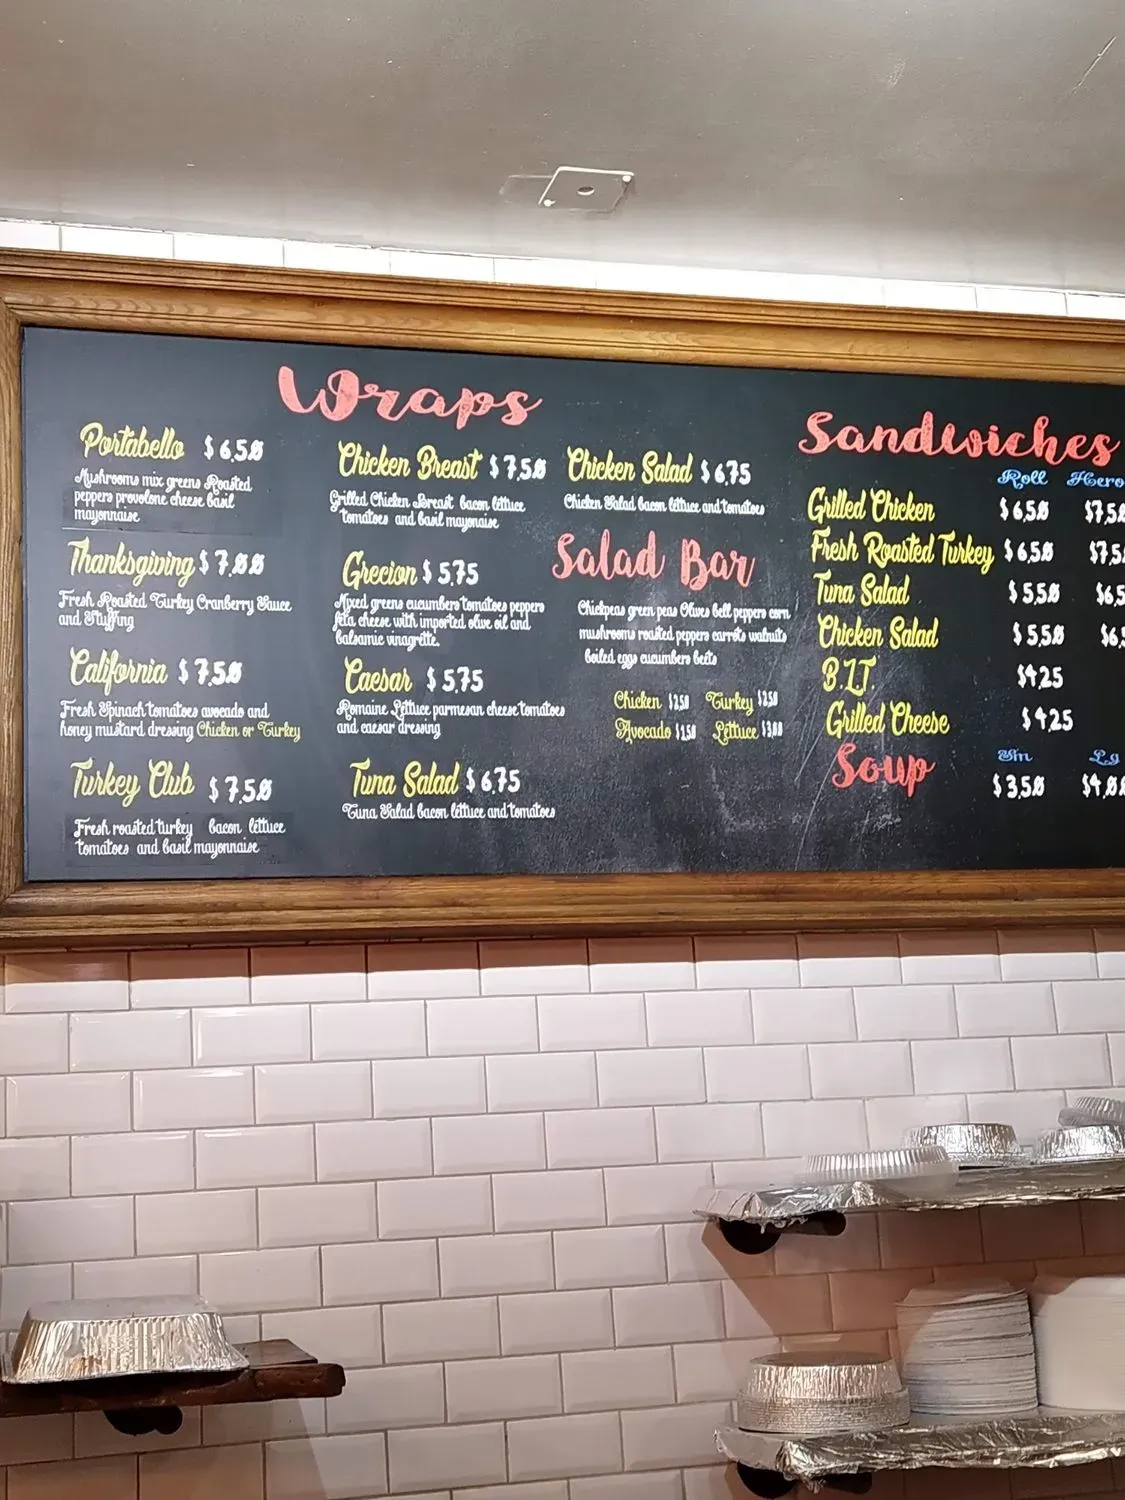 Wraps
Portabello $6.50
Mushrooms mix greens Roasted
peppers provolone cheese basil
mayonnaise
Thanksgiving $7.00
Fresh Roasted Turkey Cranberry Sauce
and Stuffing
California $7.50
Fresh Spinach tomatoes avocado and
honey mustard dressing Chicken or Turkey
Turkey Club $7.50
Fresh roasted turkey bacon lettuce
tomatoes and basil mayonnaise
Chicken Breast $7.50
Grilled Chicken Breast bacon lettuce
tomatoes and basil mayonaise
Grecian $5.75
Mixed greens cucumbers tomatoes peppers
feta cheese with imported olive oil and
balsamic vinagrette.
Caesar $5.75
Romaine Lettuce parmesan cheese tomatoes
and caesar dressing
Tuna Salad $6.75
Tuna Salad bacon lettuce and tomatoes
Chicken Salad $6.75
Chicken Salad bacon lettuce and tomatoes
Salad Bar
Chickpeas green peas Olives bell peppers corn
mushrooms roasted peppers carrots walnuts
boiled eggs cucumbers beets
Chicken $2.50 Turkey $2.50
Avocado $1.50 Lettuce $3.00
Sandwiches
Roll Hero
Grilled Chicken $6.50 $7.5
Fresh Roasted Turkey $6.50 $7.5
Tuna Salad $5.50 $6.5
Chicken Salad $5.50 $6.
B.L.T. $4.25
Grilled Cheese $4.25
Soup Sm Lg
$3.50 $4.0